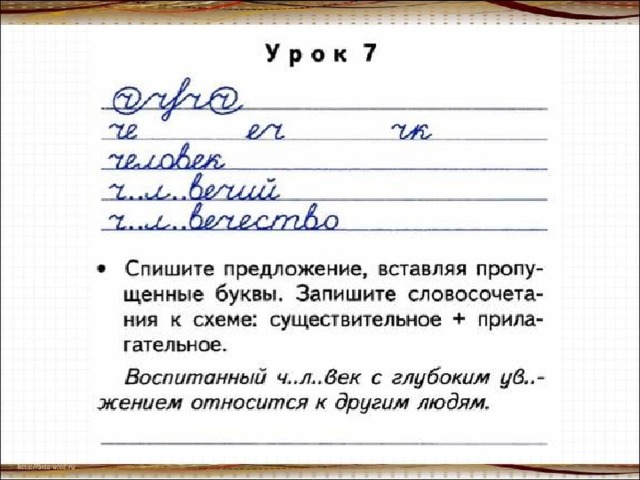 Урок 7
че еч чк
человек
ч..л..вечий
ч..л..вечество
• Спишите предложение, вставляя пропу-
щенные буквы. Запишите словосочета-
ния к схеме: существительное + прила-
гательное.
Воспитанный ч..л..век с глубоким ув..-
жением относится к другим людям.